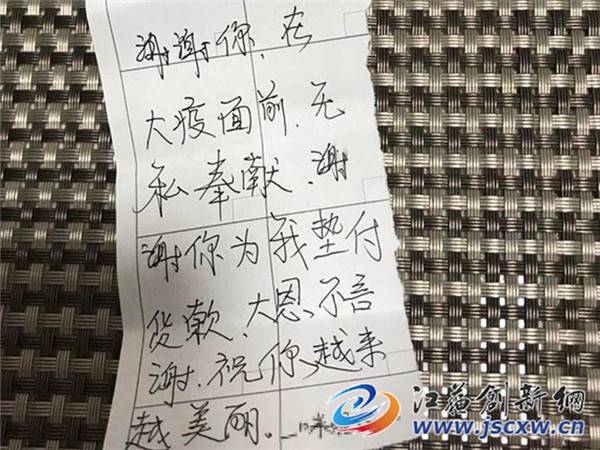 谢谢你，在
大疫面前，无
私奉献，谢
谢你为我垫付
货款，大恩不言
谢，祝你越来
越美丽。
江苏创新網
www.jscxw.cn